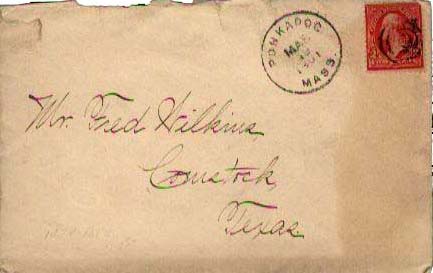 PONKAPOG
MAR
1901
MASS.
Mr. Fred Wilkins,
Comstock,
Texas